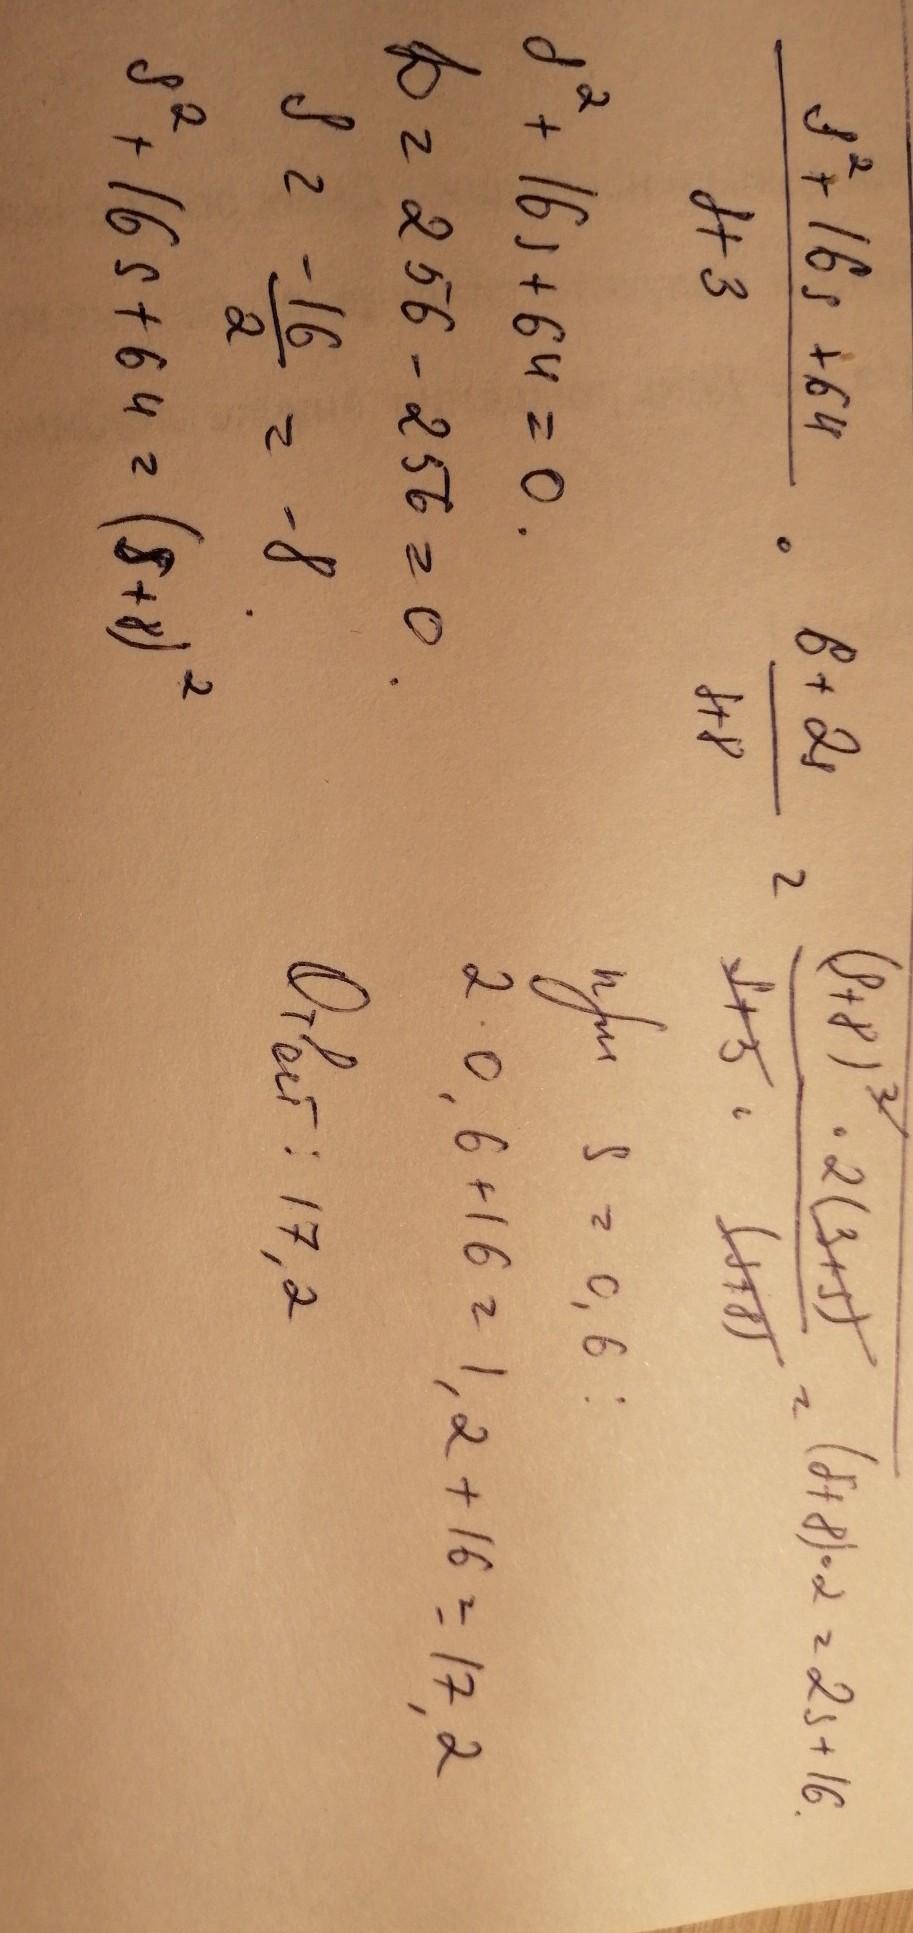 (s² + 16s + 64)/(s+3) · (6 + 2s)/(s+8) = ((s+8)² · 2(3+s))/(s+3 · (s+8)) = (s+8)·2 = 2s+16.
s² + 16s + 64 = 0.
D = 256 - 256 = 0.
s = -16/2 = -8.
s² + 16s + 64 = (s+8)²
при s = 0,6:
2 · 0,6 + 16 = 1,2 + 16 = 17,2
Ответ: 17,2